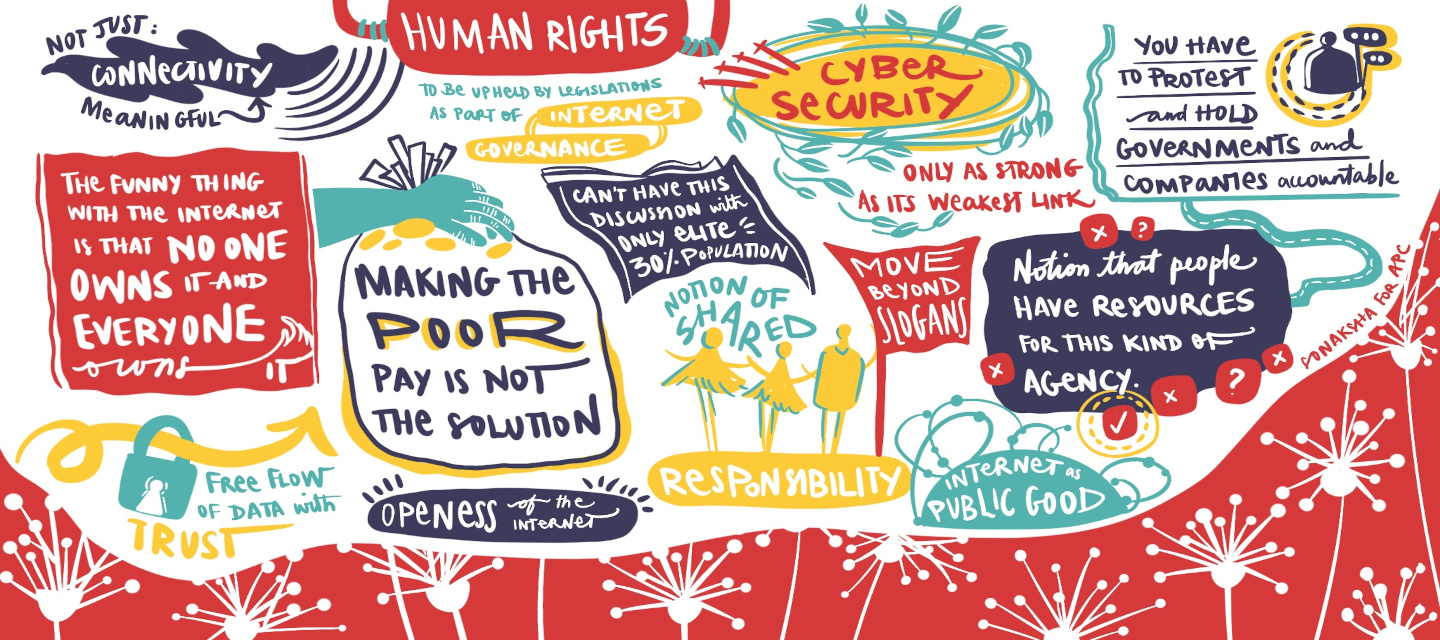 NOT JUST:
CONNECTIVITY
MEANINGFUL
HUMAN RIGHTS
TO BE UPHELD BY LEGISLATIONS
AS PART OF INTERNET
GOVERNANCE
CYBER
SECURITY
ONLY AS STRONG
AS ITS WEAKEST LINK
YOU HAVE
TO PROTEST
and HOLD
GOVERNMENTS and
COMPANIES accountable
THE FUNNY THING
WITH THE INTERNET
IS THAT NO ONE
OWNS IT AND
EVERYONE
owns IT
MAKING THE
POOR
PAY IS NOT
THE SOLUTION
CAN'T HAVE THIS
DISCUSSION with
ONLY ELITE
30% POPULATION
NOTION OF
SHARED
RESPONSIBILITY
MOVE
BEYOND
SLOGANS
Notion that people
HAVE RESOURCES
FOR THIS KIND OF
AGENCY.
SONAKSHA FOR APC
FREE FLOW
OF DATA with
TRUST
OPENESS of the
INTERNET
INTERNET as
PUBLIC GOOD